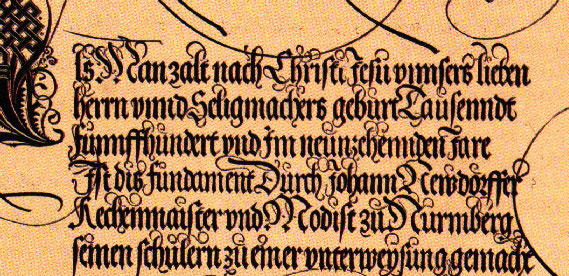 Als Man zalt nach Christi Jesu vnnsers lieben
herrn vnnd Seligmachers geburt Tausenndt
funnffhundert vnd Im neunzehennden Jare
Ist dis fundament Durch Johann Newdorffer
Rechenmaister vnd Modist zů Nurmberg,
seinen schulern zů einer vnterweysung gemacht